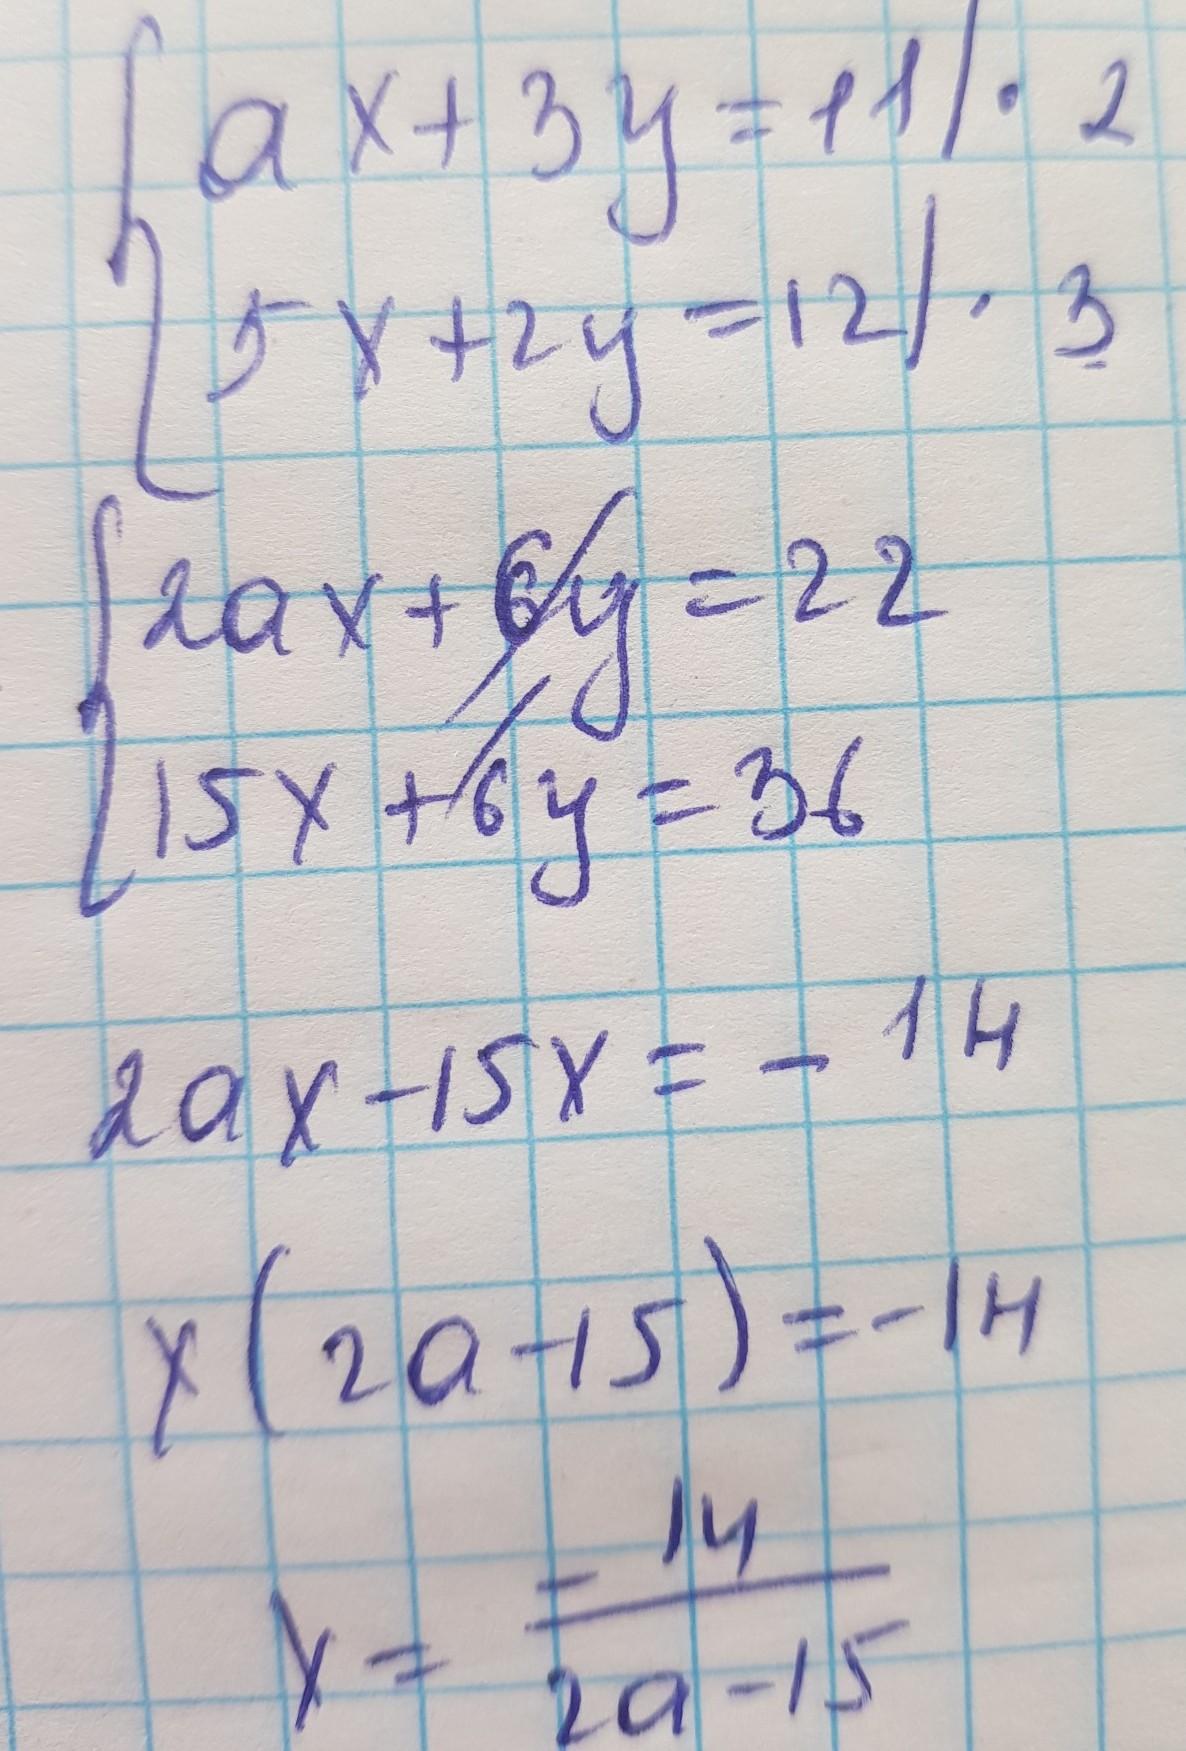 ax + 3y = 11 / · 2
5x + 2y = 12 / · 3
2ax + 6y = 22
15x + 6y = 36
2ax - 15x = - 14
x ( 2a - 15 ) = - 14
x = - 14 / 2a - 15